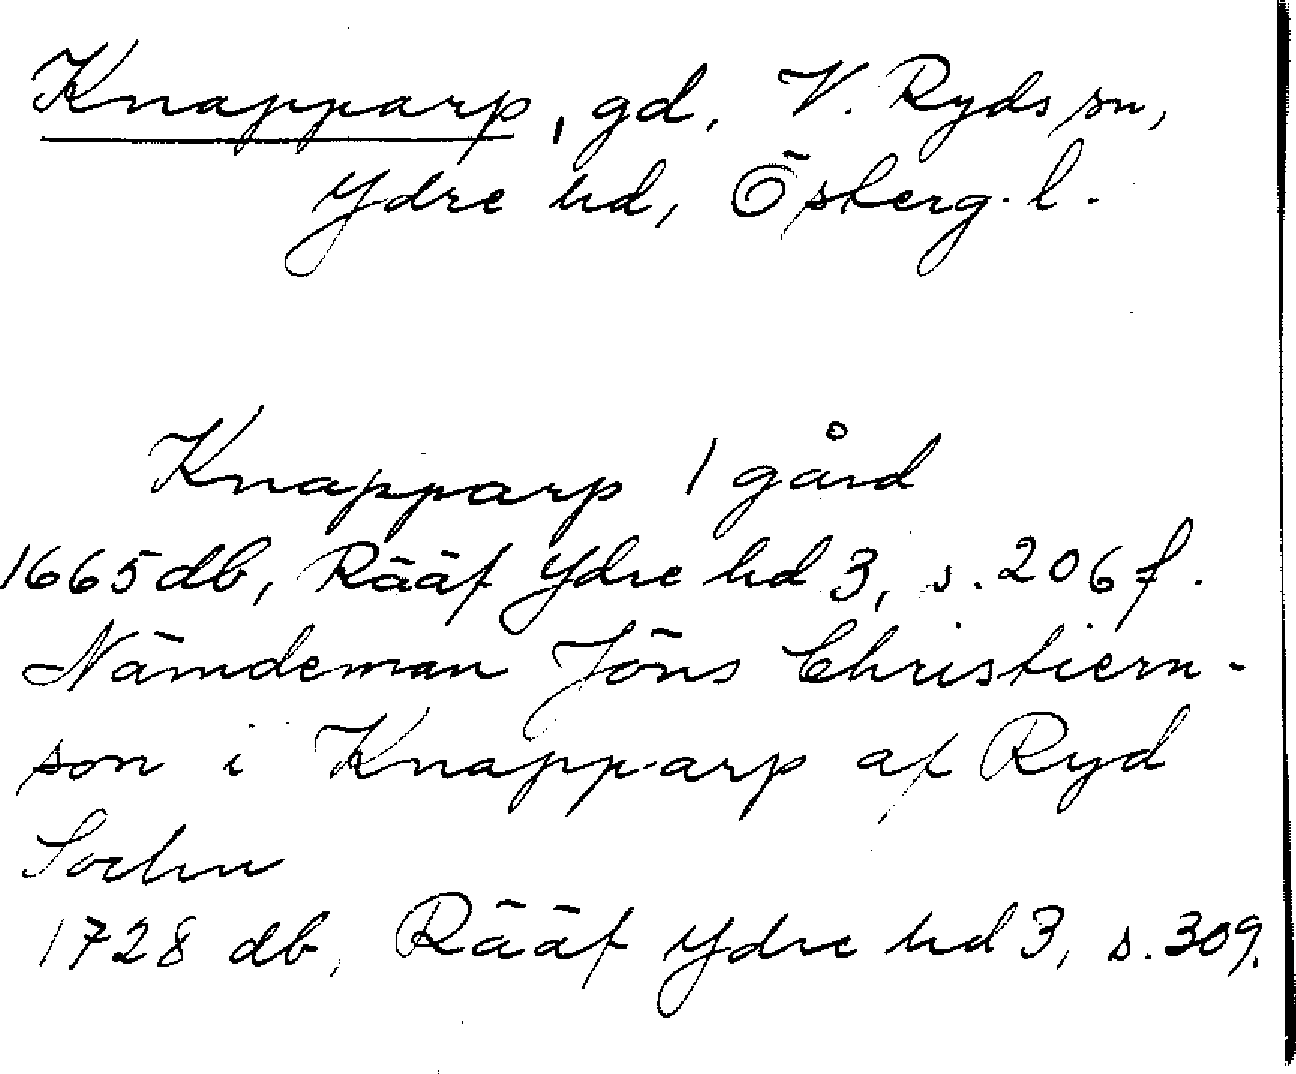 Knapparp, gd, V. Ryds sn,
Ydre hd, Österg. l.
Knapparp 1 gård
1665 db, Rääf Ydre hd 3, s. 206 f.
Nämdeman Jöns Christiern-
son i Knapparp af Ryd
Sochn
1728 db, Rääf Ydre hd 3, s. 309.